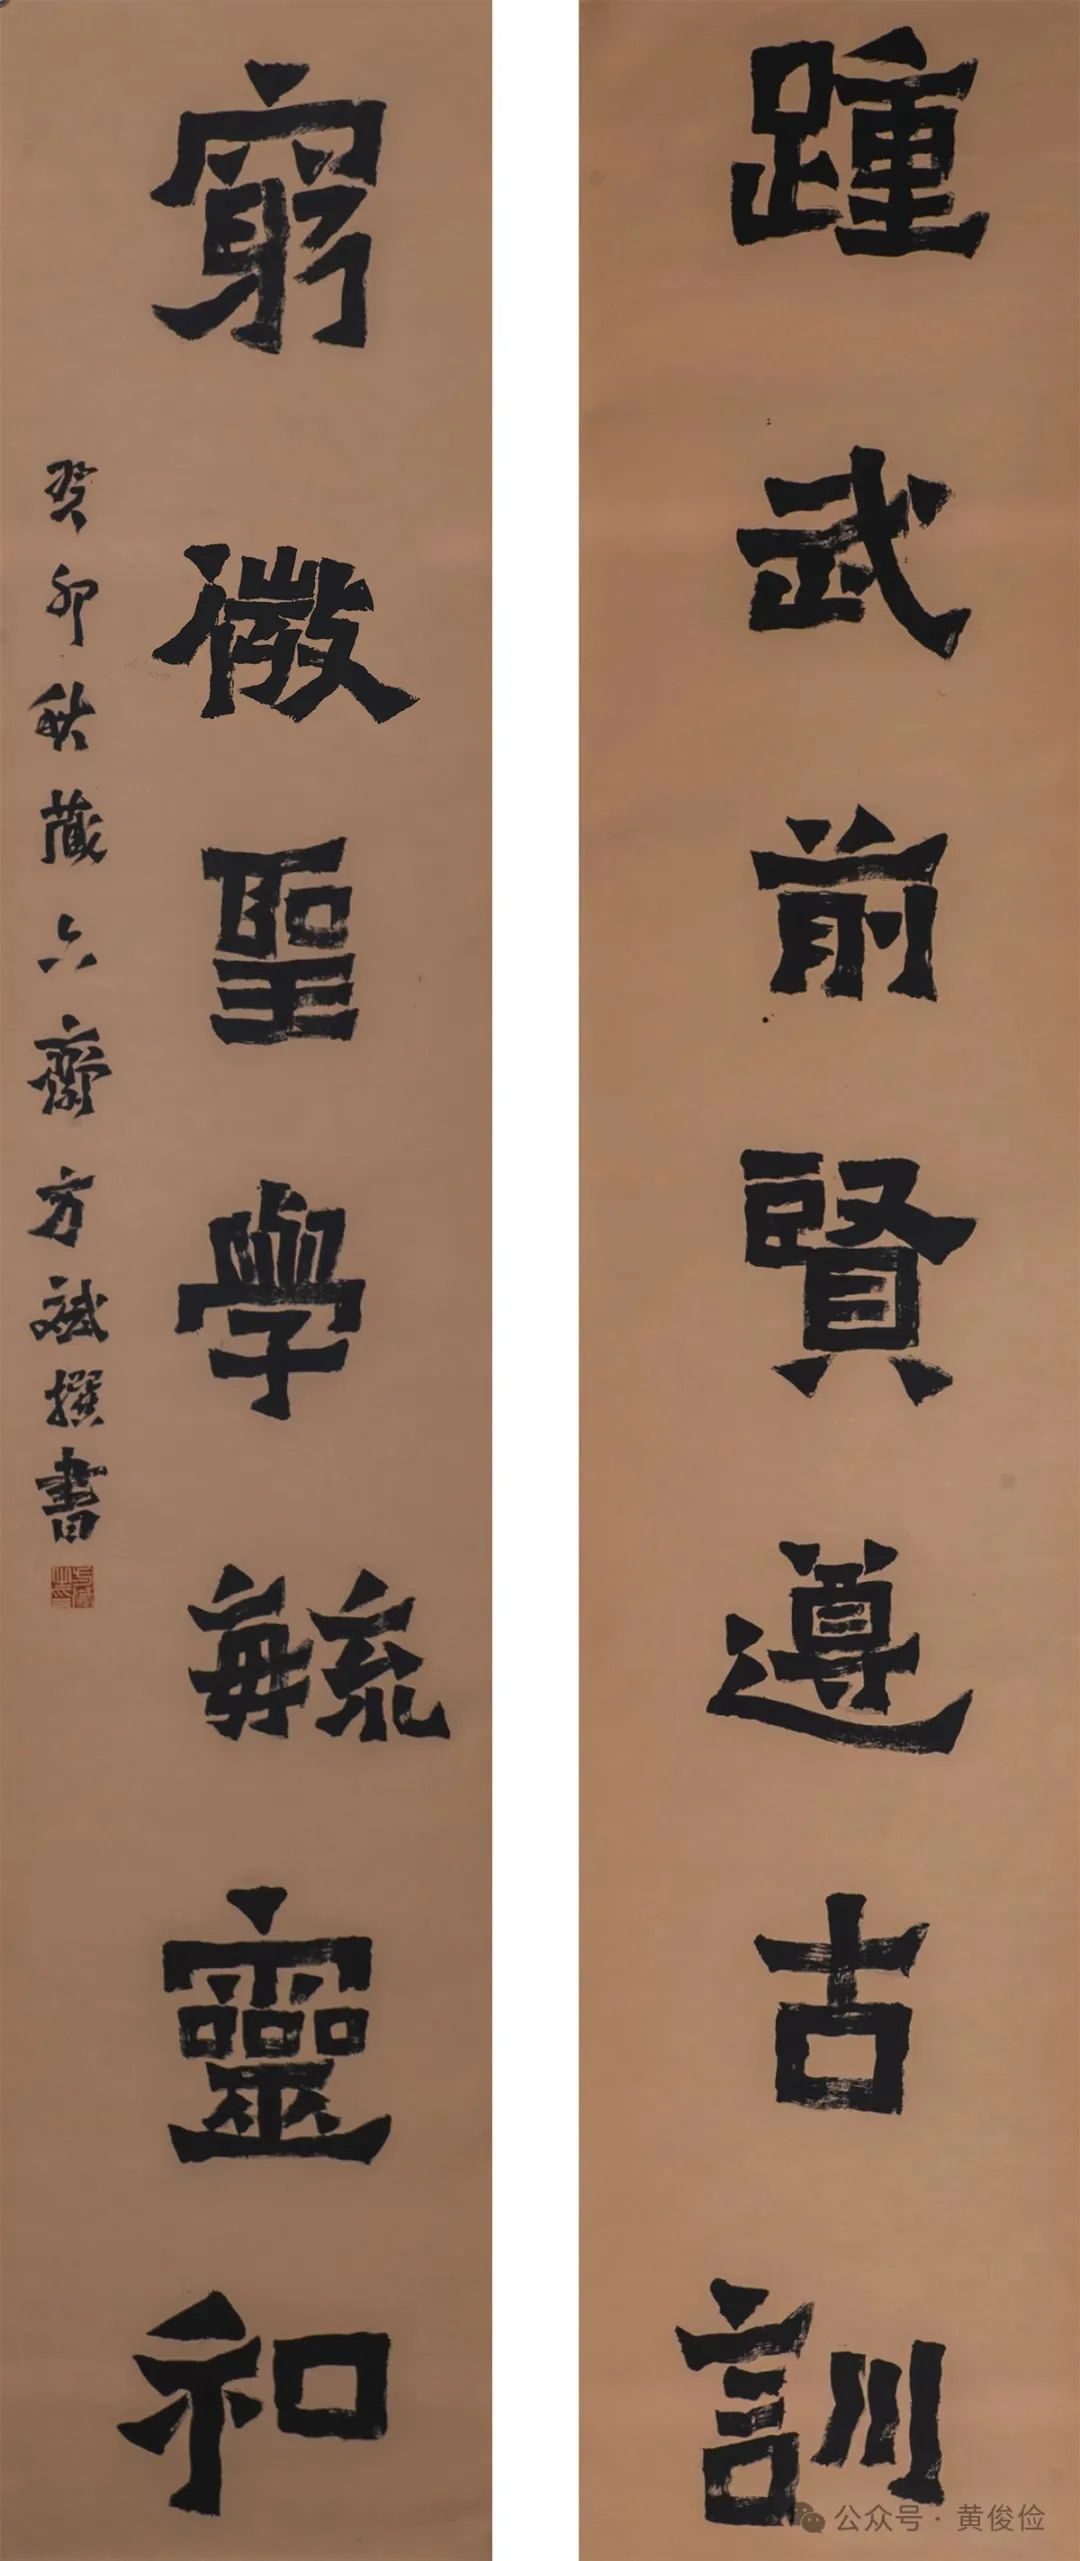 踵武前賢遵古訓
窮微聖學毓靈和
癸卯秋藏六齋方斌撰書
公众号·黄俊俭